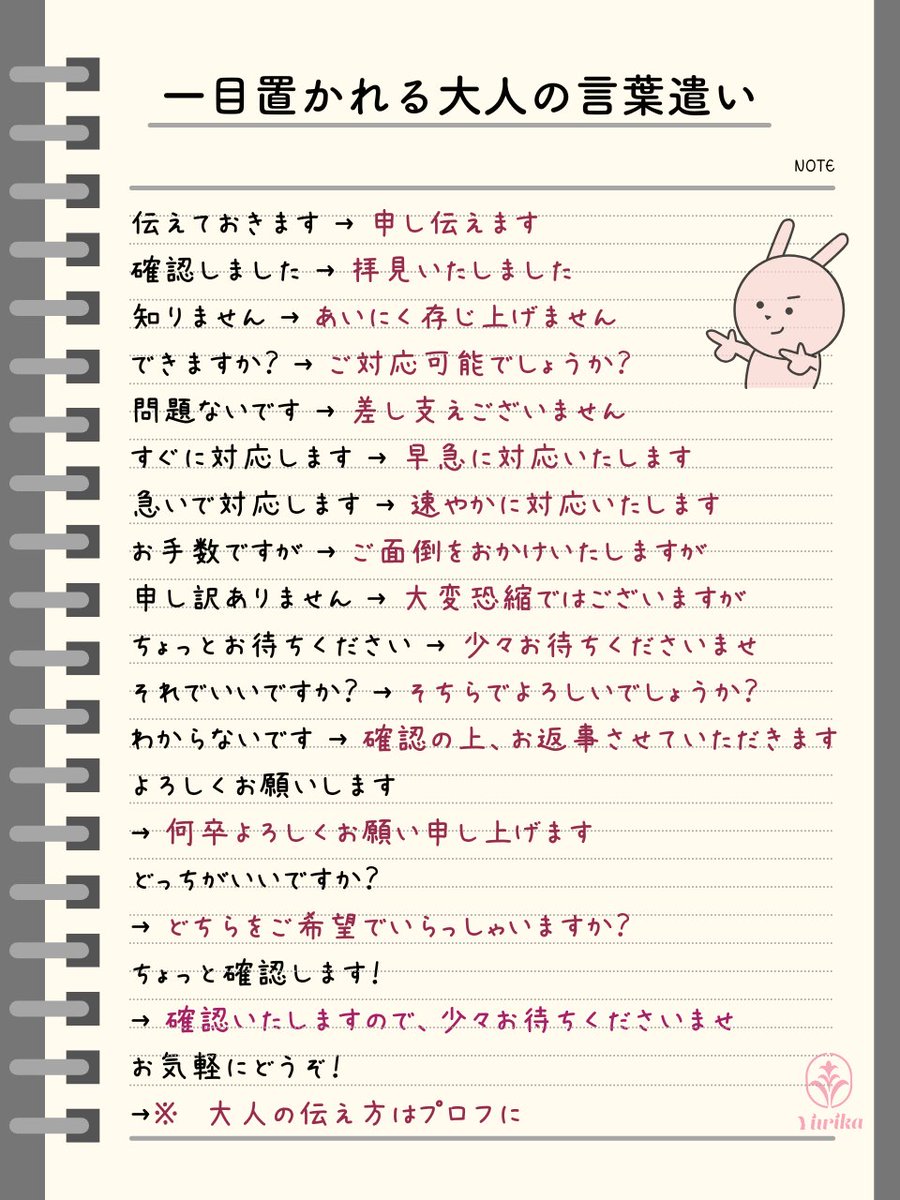 一目置かれる大人の言葉遣い
NOTE
伝えておきます → 申し伝えます
確認しました → 拝見いたしました
知りません → あいにく存じ上げません
できますか? → ご対応可能でしょうか?
問題ないです → 差し支えございません
すぐに対応します → 早急に対応いたします
急いで対応します → 速やかに対応いたします
お手数ですが → ご面倒をおかけいたしますが
申し訳ありません → 大変恐縮ではございますが
ちょっとお待ちください → 少々お待ちくださいませ
それでいいですか? → そちらでよろしいでしょうか?
わからないです → 確認の上、お返事させていただきます
よろしくお願いします
→ 何卒よろしくお願い申し上げます
どっちがいいですか?
→ どちらをご希望でいらっしゃいますか?
ちょっと確認します!
→ 確認いたしますので、少々お待ちくださいませ
お気軽にどうぞ!
→※ 大人の伝え方はプロフに